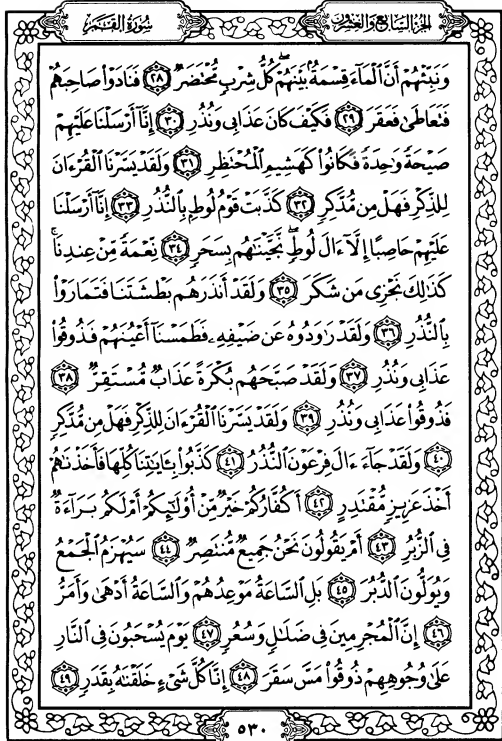 الجزء السابع والعشرون
سورة القمر
وَنَبِّئْهُمْ أَنَّ ٱلْمَآءَ قِسْمَةٌۢ بَيْنَهُمْ ۖ كُلُّ شِرْبٍ مُّحْتَضَرٌ ۝٢٨ فَنَادَوْا۟ صَاحِبَهُمْ
فَتَعَاطَىٰ فَعَقَرَ ۝٢٩ فَكَيْفَ كَانَ عَذَابِى وَنُذُرِ ۝٣٠ إِنَّآ أَرْسَلْنَا عَلَيْهِمْ
صَيْحَةً وَٰحِدَةً فَكَانُوا۟ كَهَشِيمِ ٱلْمُحْتَظِرِ ۝٣١ وَلَقَدْ يَسَّرْنَا ٱلْقُرْءَانَ
لِلذِّكْرِ فَهَلْ مِن مُّدَّكِرٍ ۝٣٢ كَذَّبَتْ قَوْمُ لُوطٍۭ بِٱلنُّذُرِ ۝٣٣ إِنَّآ أَرْسَلْنَا
عَلَيْهِمْ حَاصِبًا إِلَّآ ءَالَ لُوطٍ ۖ نَّجَّيْنَٰهُم بِسَحَرٍ ۝٣٤ نِّعْمَةً مِّنْ عِندِنَا ۚ
كَذَٰلِكَ نَجْزِى مَن شَكَرَ ۝٣٥ وَلَقَدْ أَنذَرَهُم بَطْشَتَنَا فَتَمَارَوْا۟
بِٱلنُّذُرِ ۝٣٦ وَلَقَدْ رَٰوَدُوهُ عَن ضَيْفِهِۦ فَطَمَسْنَآ أَعْيُنَهُمْ فَذُوقُوا۟
عَذَابِى وَنُذُرِ ۝٣٧ وَلَقَدْ صَبَّحَهُم بُكْرَةً عَذَابٌ مُّسْتَقِرٌّ ۝٣٨
فَذُوقُوا۟ عَذَابِى وَنُذُرِ ۝٣٩ وَلَقَدْ يَسَّرْنَا ٱلْقُرْءَانَ لِلذِّكْرِ فَهَلْ مِن مُّدَّكِرٍ
۝٤٠ وَلَقَدْ جَآءَ ءَالَ فِرْعَوْنَ ٱلنُّذُرُ ۝٤١ كَذَّبُوا۟ بِـَٔايَٰتِنَا كُلِّهَا فَأَخَذْنَٰهُمْ
أَخْذَ عَزِيزٍ مُّقْتَدِرٍ ۝٤٢ أَكُفَّارُكُمْ خَيْرٌ مِّنْ أُو۟لَٰٓئِكُمْ أَمْ لَكُم بَرَآءَةٌ
فِى ٱلزُّبُرِ ۝٤٣ أَمْ يَقُولُونَ نَحْنُ جَمِيعٌ مُّنتَصِرٌ ۝٤٤ سَيُهْزَمُ ٱلْجَمْعُ
وَيُوَلُّونَ ٱلدُّبُرَ ۝٤٥ بَلِ ٱلسَّاعَةُ مَوْعِدُهُمْ وَٱلسَّاعَةُ أَدْهَىٰ وَأَمَرُّ
۝٤٦ إِنَّ ٱلْمُجْرِمِينَ فِى ضَلَٰلٍ وَسُعُرٍ ۝٤٧ يَوْمَ يُسْحَبُونَ فِى ٱلنَّارِ
عَلَىٰ وُجُوهِهِمْ ذُوقُوا۟ مَسَّ سَقَرَ ۝٤٨ إِنَّا كُلَّ شَىْءٍ خَلَقْنَٰهُ بِقَدَرٍ ۝٤٩
٥٣٠